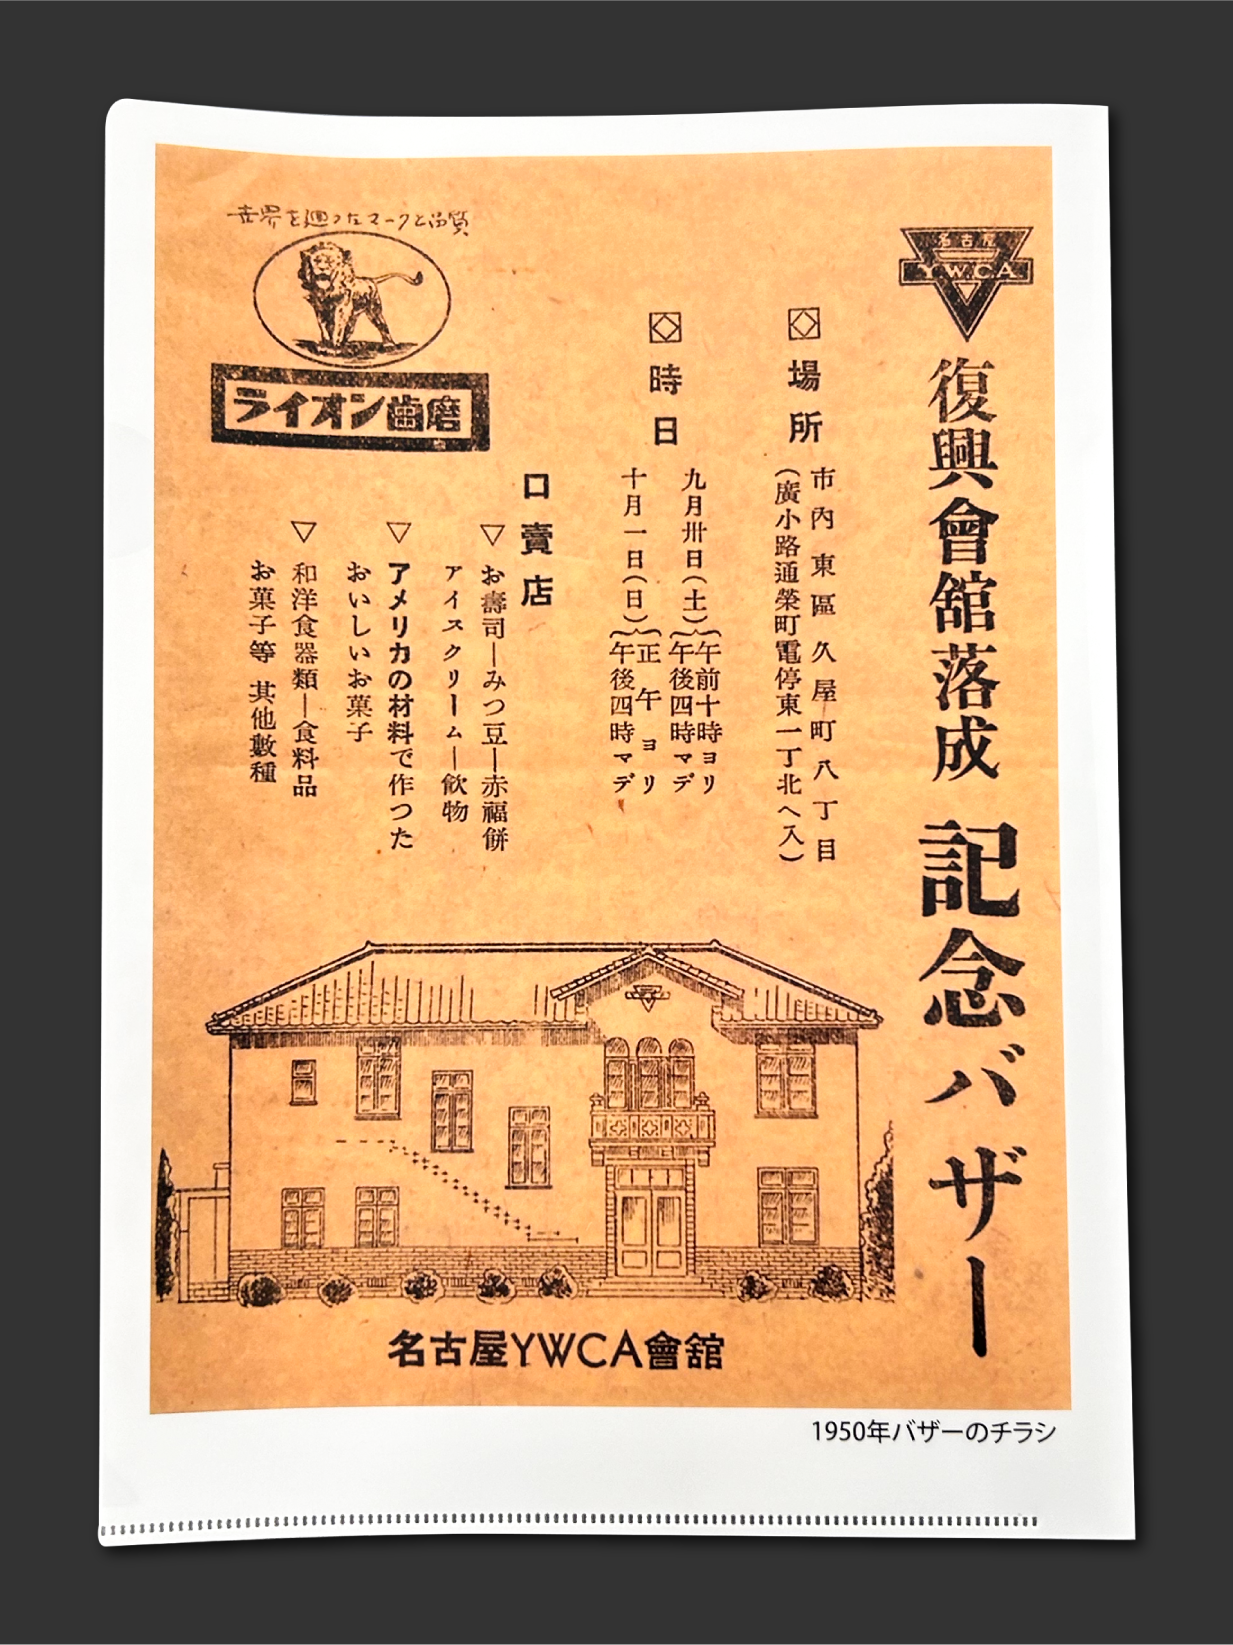 名古屋
YWCA
復興會舘落成 記念バザー
場所
市內東區久屋町八丁目
(廣小路通榮町電停東一丁北へ入)
時日
九月卅日(土)
午前十時ヨリ
午後四時マデ
十月一日(日)
正午ヨリ
午後四時マデ
口賣店
▽お壽司―みつ豆―赤福餅
アイスクリーム―飮物
▽アメリカの材料で作つた
おいしいお菓子
▽和洋食器類―食料品
お菓子等 其他數種
世界を廻つたマークと品質
ライオン歯磨
名古屋YWCA會舘
1950年バザーのチラシ